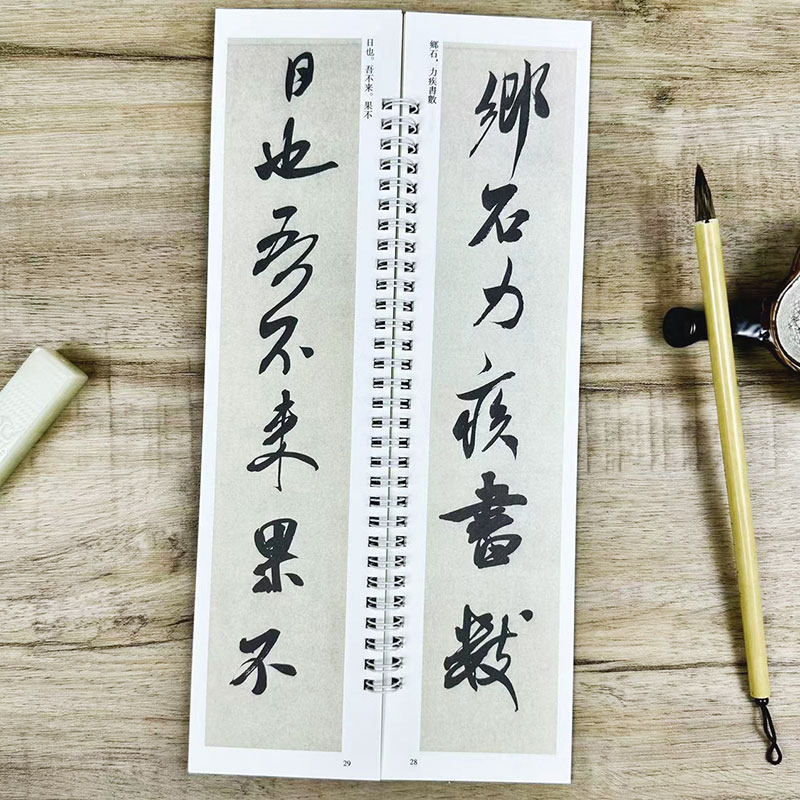 鄉石，力疾書數
鄉石力疾書數
28
日也。吾不来。果不
日也吾不来果不
29